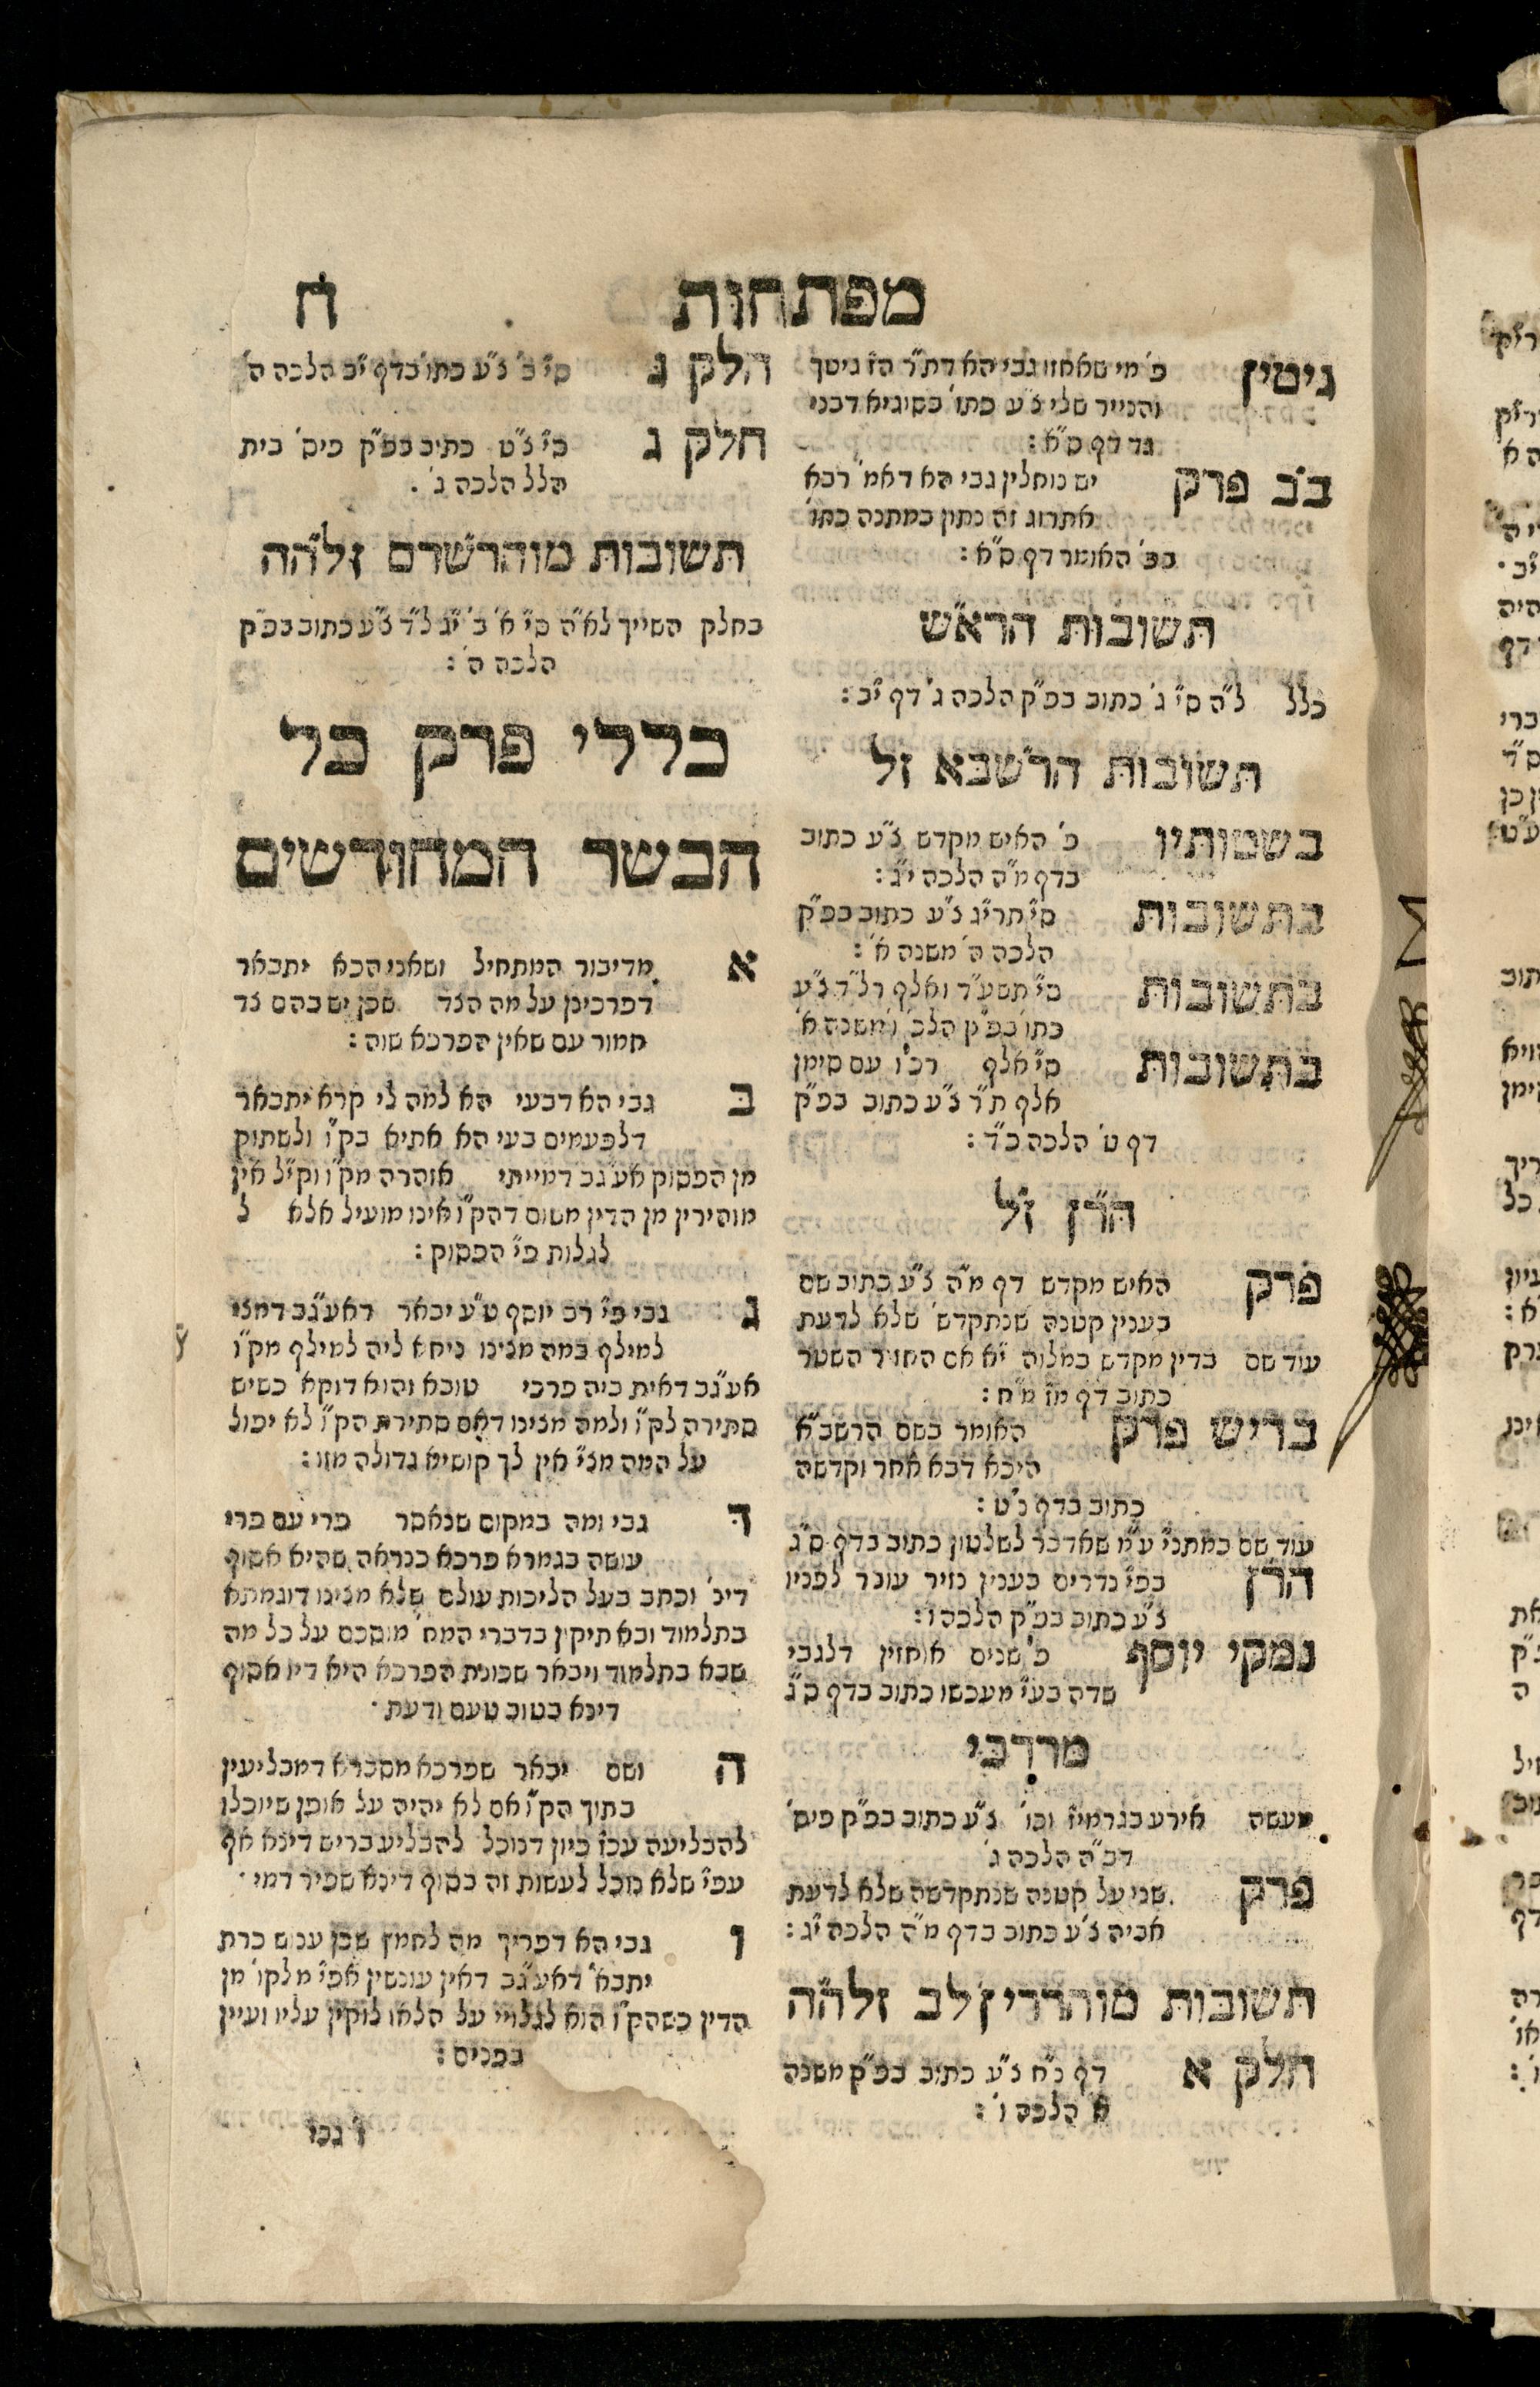 מפתחות
ח
גיטין פ' מי שאחזו גבי הא דת"ר הז גיטך
והנייר שלי צ"ע כתו' בסוגיא דבני
גד דף ס"א :
ב"ב פרק יש נוחלין גבי הא דאמ' רבא
אתרוג זה נתון במתנה כתו'
בפ' האומר דף ס"א :
תשובות הרא"ש
כלל ל"ה סי' ג' כתוב בפ"ק הלכה ג' דף י"ב :
תשובות הרשבא זל
בשמותיו פ' האיש מקדש צ"ע כתוב
בדף מ"ה הלכה י"ג :
בתשובות סי' תרי"ג צ"ע כתוב בפ"ק
הלכה ה' משנה א' :
בתשובות סי' תשע"ד ואלף רל"ד צ"ע
כתו' בפ"ק הלכ' ו' משנה א'
בתשובות סי' אלף רכ"ו עם סימן
אלף ת"ד צ"ע כתוב בפ"ק
דף ט' הלכה כ"ד :
הר"ן ז"ל
פרק האיש מקדש דף מ"ה צ"ע כתוב שם
בענין קטנה שנתקדש' שלא לדעת
עוד שם בדין מקדש במלוה י"א אם החזיר השטר
כתוב דף מז מ"ח :
בריש פרק האומר בשם הרשב"א
היכא דבא אחר וקדשה
כתוב בדף נ"ט :
עוד שם במתני' ע"מ שאדבר לשלטון כתוב בדף ס"ג
הרן בפי' נדרים בענין נזיר עובר לפניו
צ"ע כתוב בפ"ק הלכה ו :
נמקי יוסף פ' שנים אוחזין דלגבי
שדה בעי' מעכשו כתוב בדף ס"ג
מרדכי
מעשה אירע בגרמיז וכו' צ"ע כתוב בפ"ק פיס'
דכ"ה הלכה ג'
פרק שני על קטנה שנתקדשה שלא לדעת
אביה צ"ע כתוב בדף מ"ה הלכה י"ג :
תשובות מוהררי"ז לב זלה"ה
חלק א דף נ"ח צ"ע כתוב בפ"ק משנה
א' הלכה ו' :
חלק ג סי' כ' צ"ע כתו' בדף י"ב הלכה ה'
חלק ג סי' צ"ט כתיב בפ"ק פיס' בית
הלל הלכה ג' .
תשובות מוהרשדם זלה"ה
בחלק השייך לא"ה סי' א' ב' י"ג ל"ד צ"ע כתוב בפ"ק
הלכה ה' :
כללי פרק כל
הבשר המחודשים
א מדיבור המתחיל ושאני הכא יתבאר
דפרכינן על מה הצד שכן יש בהם צד
חמור עם שאין הפרכא שוה :
ב גבי הא דבעי הא למה לי קרא יתבאר
דלפעמים בעי הא אתיא בק"ו ולשתוק
מן הפסוק אע"גב דמייתי אזהרה מק"ו וק"ל אין
מזהירין מן הדין משום דהק"ו אינו מועיל אלא ל
לגלות פי' הפסוק :
ג גבי פי' רב יוסף ט"ע יבאר דאע"גב דמצי
למילף במה מצינו ניחא ליה למילף מק"ו
אע"גב דאית ביה פרכי טובא והוא דוקא כשיש
סתירה לק"ו ולמה מצינו דאם סתירת הק"ו לא יפול
על המה מצי' אין לך קושיא גדולה מזו :
ד גבי ומה במקום שנאסר פרי עם פרי
עושה בגמרא פרכא כנראה שהיא אסוף
דינ' וכתב בעל הליכות עולם שלא מצינו דוגמתא
בתלמוד ובא תיקין בדברי המח' מוסכם על כל מה
שבא בתלמוד ויבאר שכונת הפרכא היא דיו אסוף
דינא בטוב טעם ודעת .
ה ושם יבאר שפרכא מסברא דמבליעין
בתוך הק"ו אם לא יהיה על אופן שיוכלו
להבליעה עכ"ז כיון דנוכל להבליע בריש דינא אף
עפ"י שלא נוכל לעשות זה בסוף דינא שפיר דמי .
ו גבי הא דפריך מה לחמץ שכן ענוש כרת
יתבא' דאע"גב דאין עונשין אפי' מלקו' מן
הדין כשהק"ו הוא לגלויי על הלאו לוקין עליו ועיין
בפנים :
ז גבי